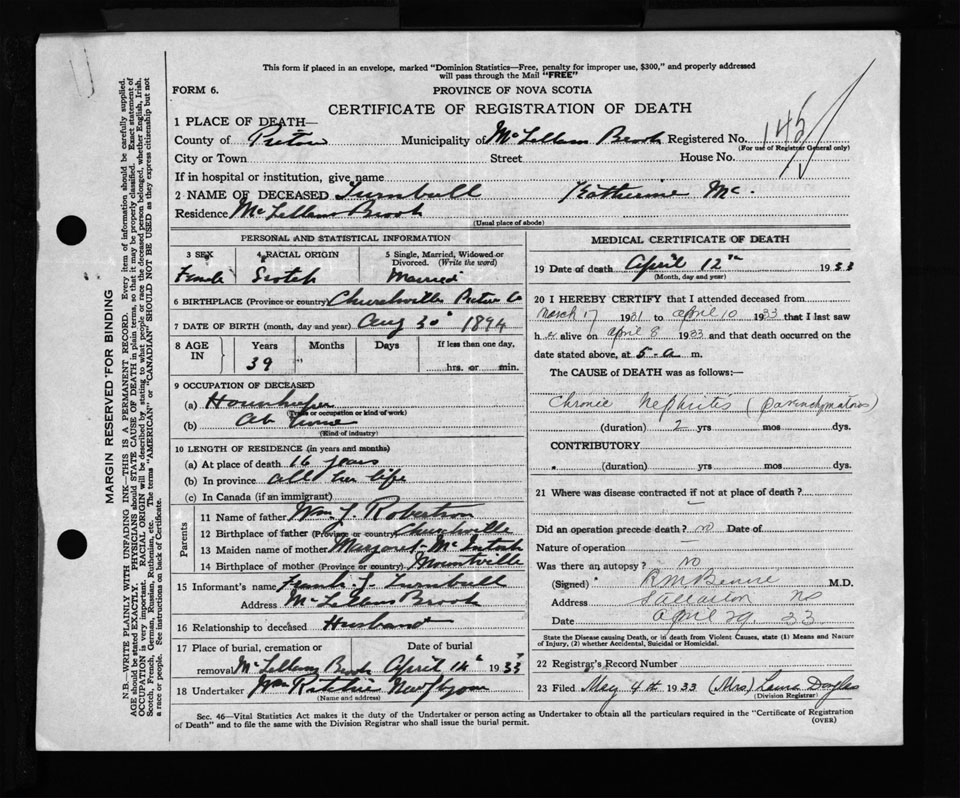 This form if placed in an envelope, marked "Dominion Statistics—Free, penalty for improper use, $300," and properly addressed
will pass through the Mail "FREE"
FORM 6. PROVINCE OF NOVA SCOTIA
CERTIFICATE OF REGISTRATION OF DEATH
1 PLACE OF DEATH—
County of Pictou Municipality of McLellans Brook Registered No. 145
(For use of Registrar General only)
City or Town Street House No.
If in hospital or institution, give name
2 NAME OF DECEASED Turnbull Katherine Mc.
Residence McLellans Brook
(Usual place of abode)
PERSONAL AND STATISTICAL INFORMATION
3 SEX 4 RACIAL ORIGIN 5 Single, Married, Widowed or
Divorced. (Write the word)
Female Scotch Married
6 BIRTHPLACE (Province or country) Churchville Pictou Co
7 DATE OF BIRTH (month, day and year) Aug 30" 1894
8 AGE IN Years Months Days If less than one day,
39 " hrs. or min.
9 OCCUPATION OF DECEASED
(a) Housekeeper
(Trade or occupation or kind of work)
(b) At home
(Kind of industry)
10 LENGTH OF RESIDENCE (in years and months)
(a) At place of death 16 years
(b) In province all her life
(c) In Canada (if an immigrant)
Parents
11 Name of father Wm J. Robertson
12 Birthplace of father (Province or country) Churchville
13 Maiden name of mother Margaret McIntosh
14 Birthplace of mother (Province or country) Mountville
15 Informant's name Frank J. Turnbull
Address McLellans Brook
16 Relationship to deceased Husband
17 Place of burial, cremation or Date of burial
removal McLellans Brook April 14" 1933
18 Undertaker Wm Ritchie New Glasgow
(Name and address)
MEDICAL CERTIFICATE OF DEATH
19 Date of death April 12th 1933
(Month, day and year)
20 I HEREBY CERTIFY that I attended deceased from
March 17 1931 to April 10 1933 that I last saw
her alive on April 8 1933 and that death occurred on the
date stated above, at 5-a m.
The CAUSE of DEATH was as follows:—
Chronic Nephritis (Parenchymatous)
(duration) 2 yrs mos dys.
CONTRIBUTORY
(duration) yrs. mos. dys.
21 Where was disease contracted if not at place of death? —
Did an operation precede death? no Date of
Nature of operation —
Was there an autopsy? no
(Signed) M.D.
Address Stellarton NS
Date April 29 33
State the Disease causing Death, or in death from Violent Causes, state (1) Means and Nature
of Injury, (2) whether Accidental, Suicidal or Homicidal.
22 Registrar's Record Number
23 Filed May 4th 1933 (Mrs) Laura Douglas
(Division Registrar)
Sec. 46—Vital Statistics Act makes it the duty of the Undertaker or person acting as Undertaker to obtain all the particulars required in the "Certificate of Registration
of Death" and to file the same with the Division Registrar who shall issue the burial permit. (OVER)
MARGIN RESERVED FOR BINDING
N.B.—WRITE PLAINLY WITH UNFADING INK—THIS IS A PERMANENT RECORD. Every item of information should be carefully supplied.
AGE should be stated EXACTLY. PHYSICIANS should STATE CAUSE OF DEATH in plain terms, so that it may be properly classified. Exact statement of
OCCUPATION is very important. RACIAL ORIGIN will be described by stating to what people or race the deceased person belonged, whether English, Irish,
Scotch, French, German, Russian, Ruthenian, etc. The terms "AMERICAN" or "CANADIAN" SHOULD NOT BE USED as they express citizenship but not
a race or people. See instructions on back of Certificate.